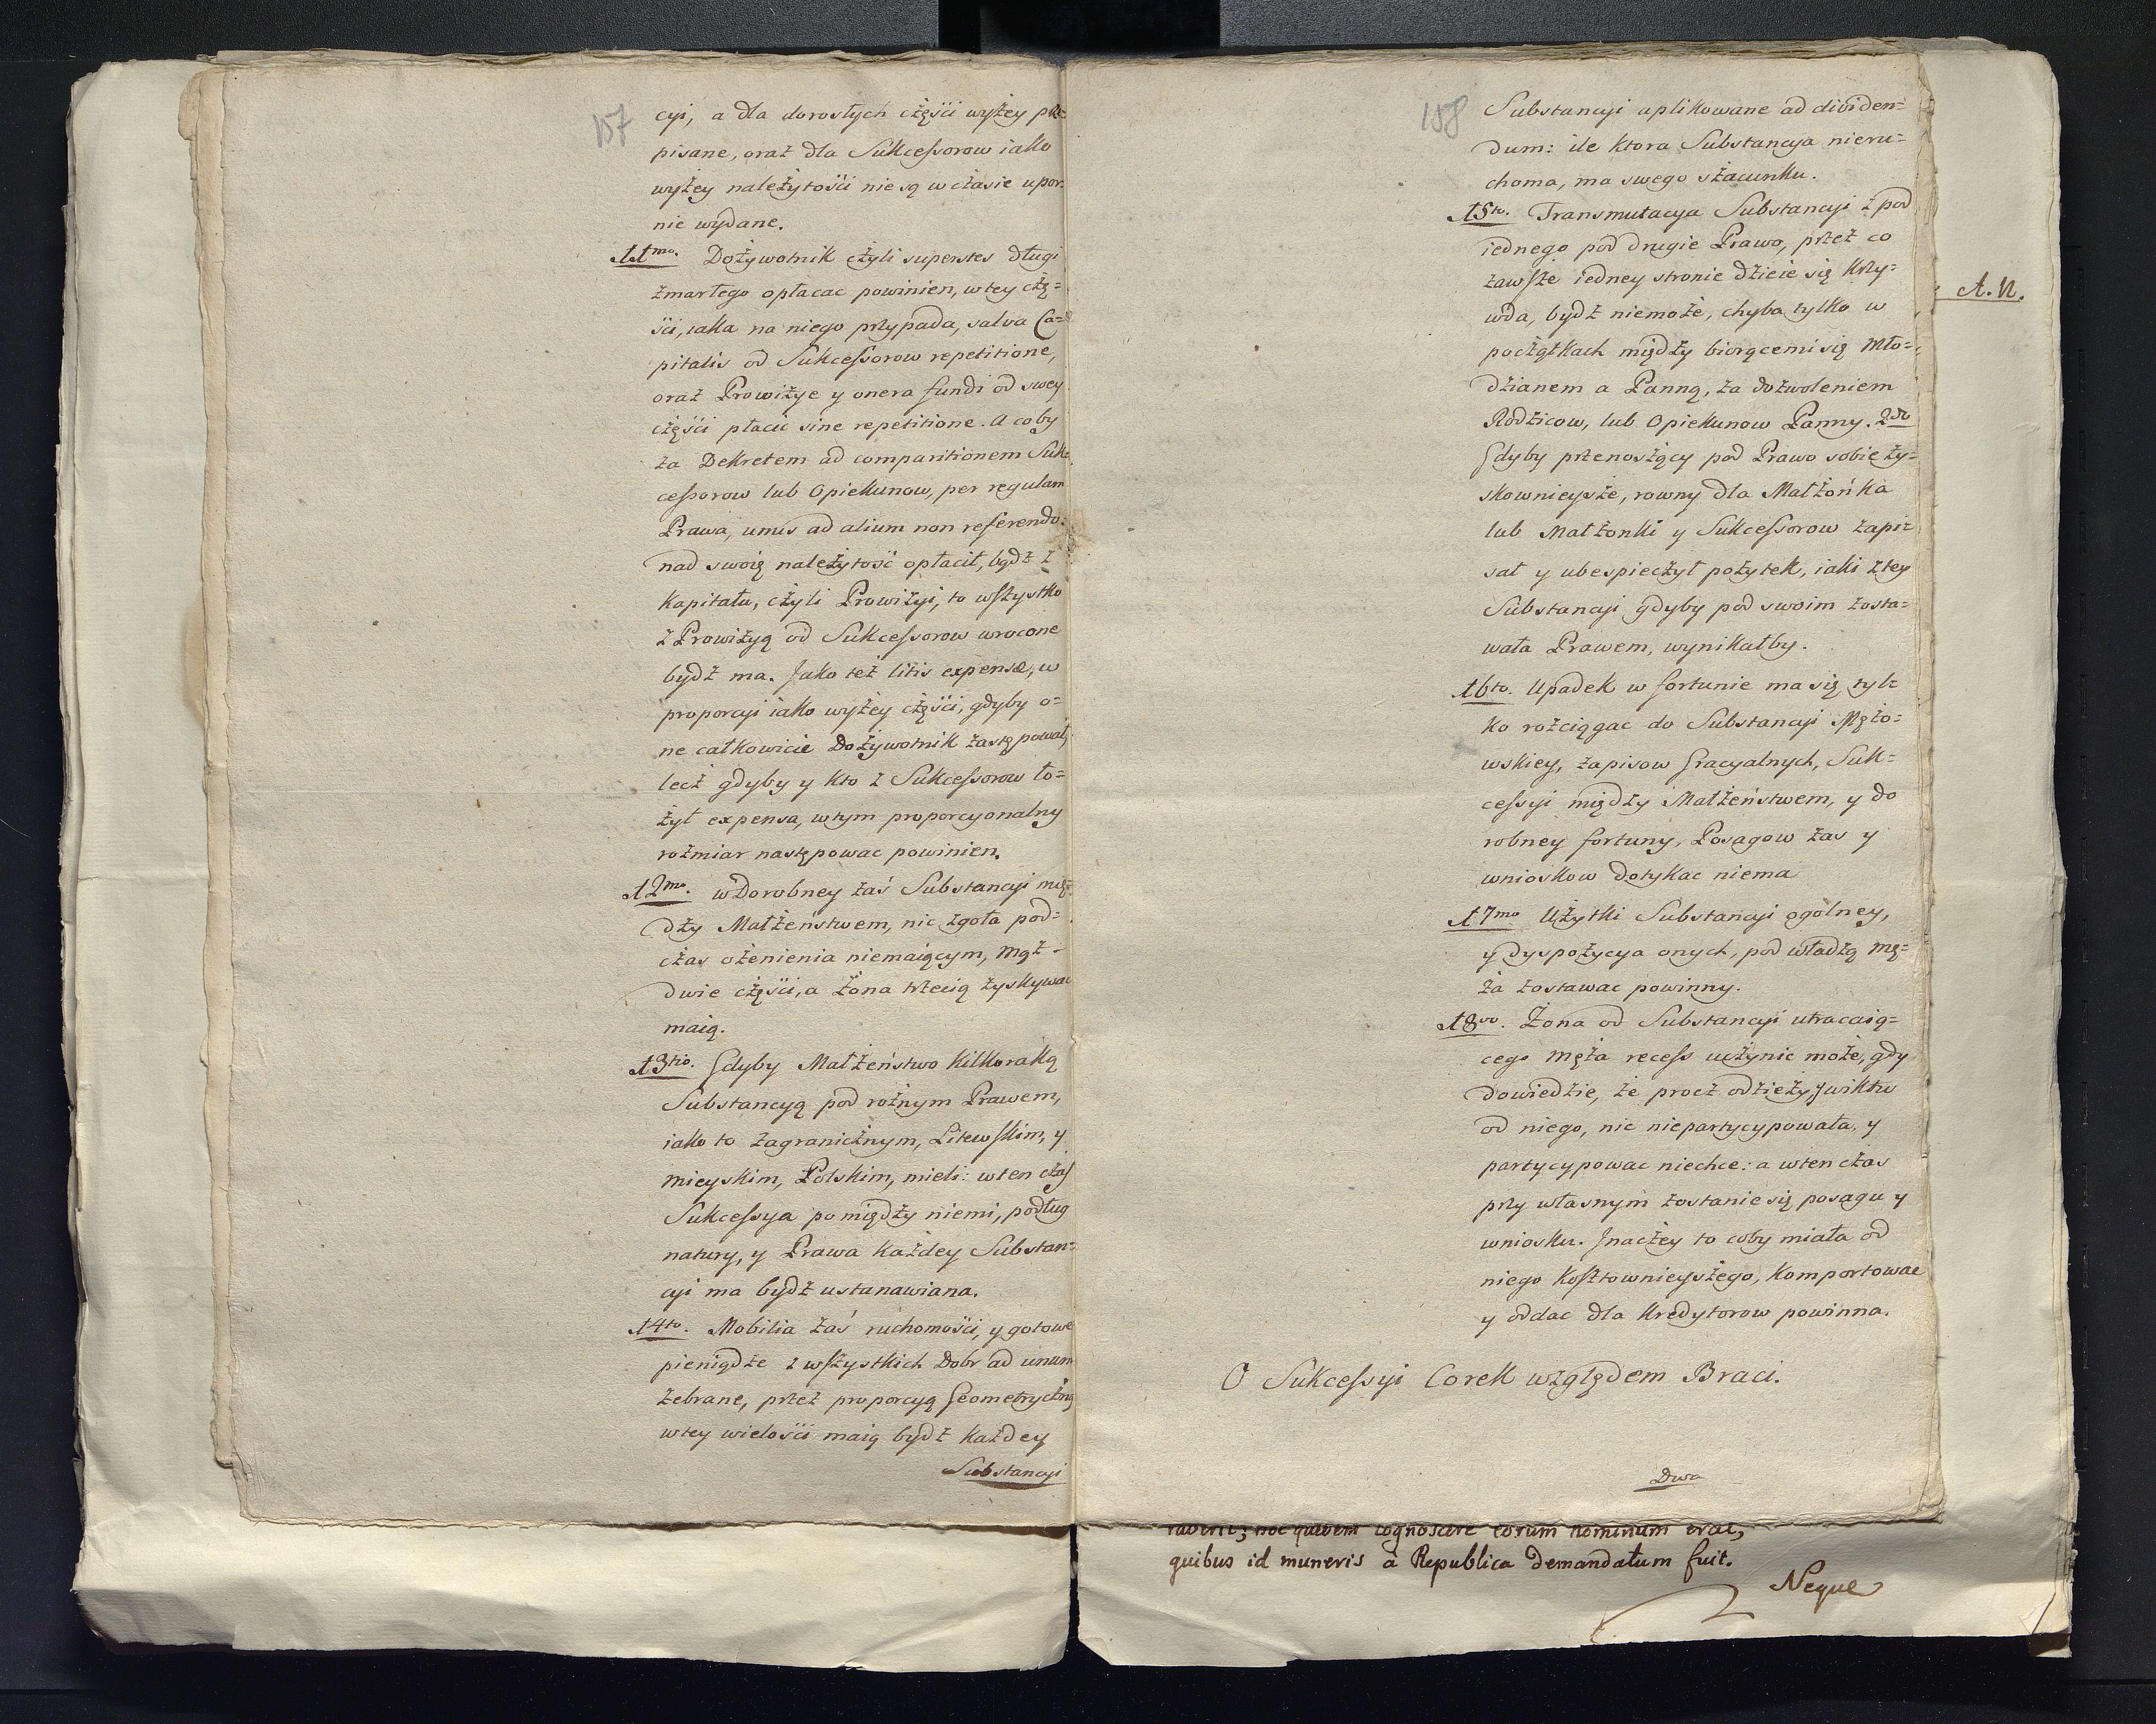 157
cyi, a dla dorosłych cżęści wyżey prze=
pisane, oraz dla Sukcessorow iako
wyżey należytości nie są w cżasie upor=
nie wydane.
11mo. Dożywotnik cżyli superstes długi
zmarłego opłacac powinien, w tey cżę=
ści, iaka na niego przypada, salva Ca=
pitalis od Sukcessorow repetitione,
oraz Prowizye y onera fundi od swey
cżęści płacic sine repetitione. A coby
za Dekretem ad comparitionem Suk=
cessorow lub Opiekunow, per regulam
Prawa, unus ad alium non referendo:
nad swoię należytość opłacił, bądź z
Kapitału, cżyli Prowizyi, to wszystko
z Prowizyą od Sukcessorow wrocone
bydź ma. Jako też litis expensæ, w
proporcyi iako wyżey cżęści, gdyby o=
ne całkowicie Dożywotnik zastępował,
lecz gdyby y kto z Sukcessorow ło=
żył expensa, w tym proporcyonalny
rozmiar następowac powinien.
12mo. w Dorobney zaś Substancyi mię=
dzy Małżeństwem, nic zgoła pod=
cżas ożenienia niemaiącym, Mąż
dwie cżęści, a Żona trzecią zyskywac
maią.
13tio. Gdyby Małżeństwo Kilkoraką
Substancyą pod rożnym Prawem,
iako to zagranicżnym, Litewskim, y
mieyskim, Polskim, mieli: w ten cżas
Sukcessya pomiędzy niemi, podług
natury, y Prawa Każdey Substan=
cyi ma bydź ustanawiana.
14to. Mobilia zaś ruchomości, y gotowe
pieniądze z wszystkich Dobr ad unum
zebrane, przez proporcyą Geometrycżną
w tey wielości maią bydź Każdey
Substancyi
158
Substancyi aplikowane ad dividen=
dum: ile ktora Substancya nieru=
choma, ma swego szacunku.
15to. Transmutacya Substancyi z pod
iednego pod drugie Prawo, przez co
zawsze iedney stronie dzieie się Krzy=
wda, bydź niemoże, chyba tylko w
pocżątkach między biorącemi się Mło=
dzianem a Panną, za dozwoleniem
Rodzicow, lub Opiekunow Panny. 2do
Gdyby przenoszący pod Prawo sobie zy=
skownieysze, rowny dla Małżońka
lub Małżonki y Sukcessorow zapi=
sał y ubespiecżył pożytek, iaki z tey
Substancyi gdyby pod swoim zosta=
wała Prawem, wynikałby.
16to. Upadek w fortunie ma się tyl=
ko rozciągac do Substancyi Mężo=
wskiey, zapisow Gracyalnych, Suk=
cessyi między Małżeństwem, y do
robney fortuny, Posagow zas y
wnioskow dotykac niema
17mo Użytki Substancyi ogolney,
y dyspozycya onych, pod władzą mę=
ża zostawac powinny.
18vo. Żona od Substancyi utracaią=
cego Męża recess ucżynic może, gdy
dowiedzie, że procz odzieży, y wiktu
od niego, nic niepartycypowała, y
partycypowac niechce: a w ten cżas
przy własnym zostanie się posagu y
wniosku. Jnacżey to coby miała od
niego Kosztownieyszego, Komportowac
y oddac dla Kredytorow powinna.
A. N.
O Sukcessyi Corek względem Braci.
Dwa
quidem cognoscere eorum hominum erat,
quibus id muneris à Republica demandatum fuit.
Neque